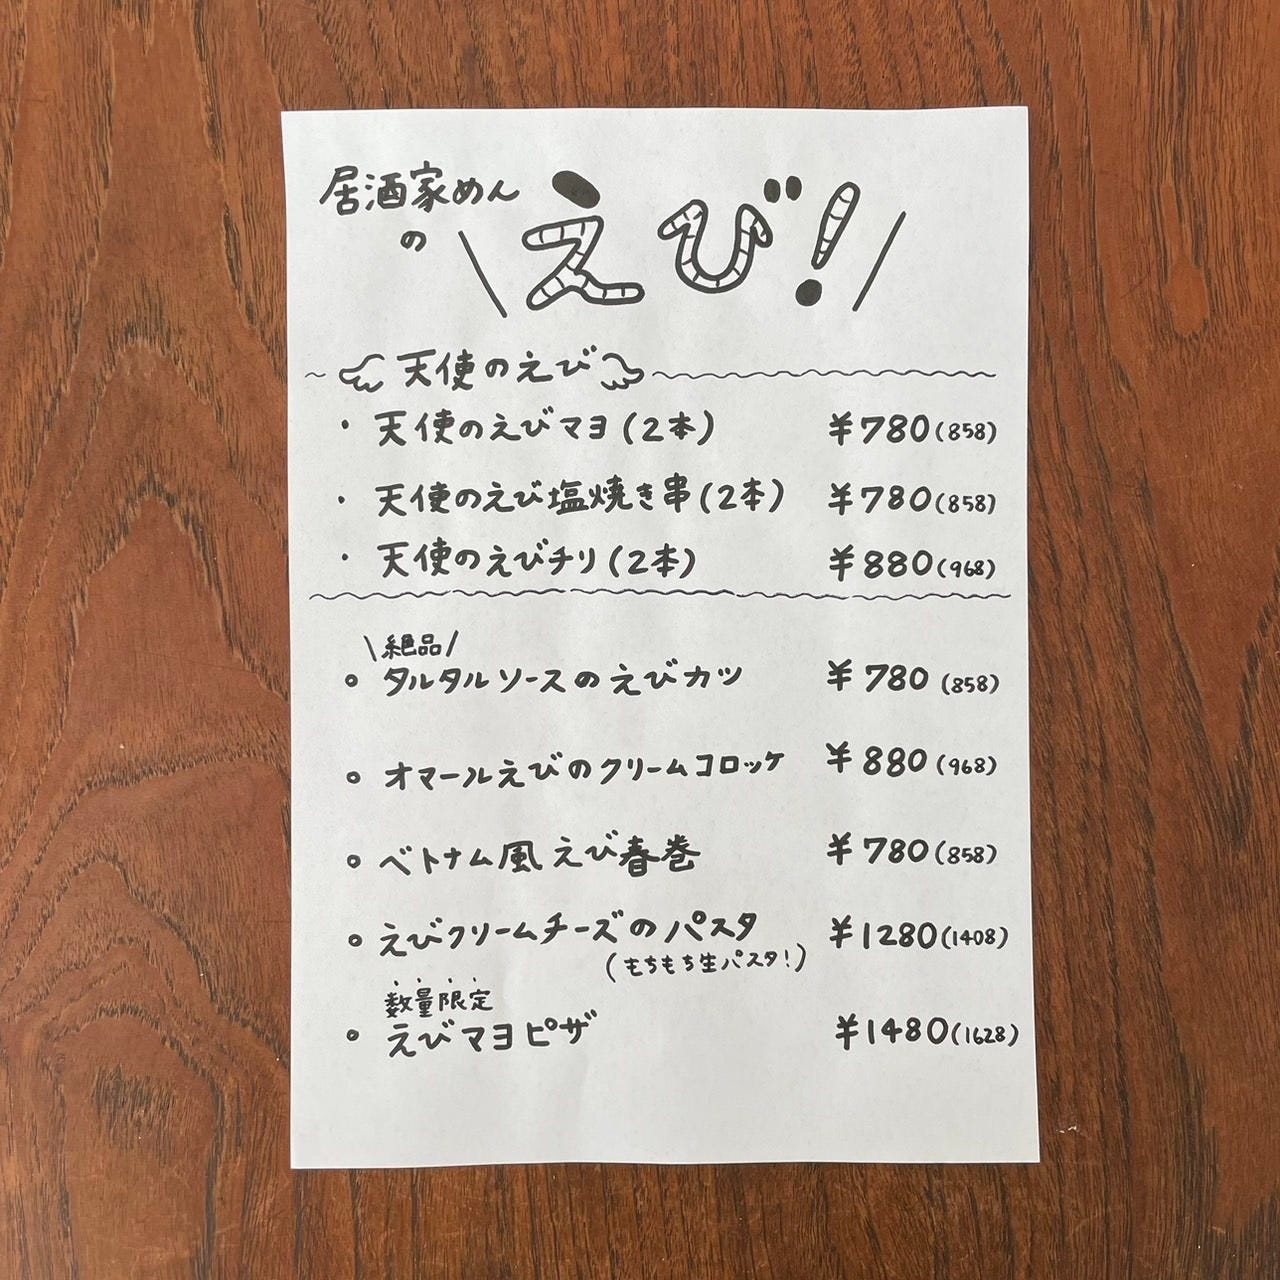 居酒家めん
の
\えび!/
天使のえび
・天使のえびマヨ(2本) ¥780(858)
・天使のえび塩焼き串(2本) ¥780(858)
・天使のえびチリ(2本) ¥880(968)
\絶品/
○タルタルソースのえびカツ ¥780(858)
○オマールえびのクリームコロッケ ¥880(968)
○ベトナム風えび春巻 ¥780(858)
○えびクリームチーズのパスタ ¥1280(1408)
(もちもち生パスタ!)
数量限定
○えびマヨピザ ¥1480(1628)